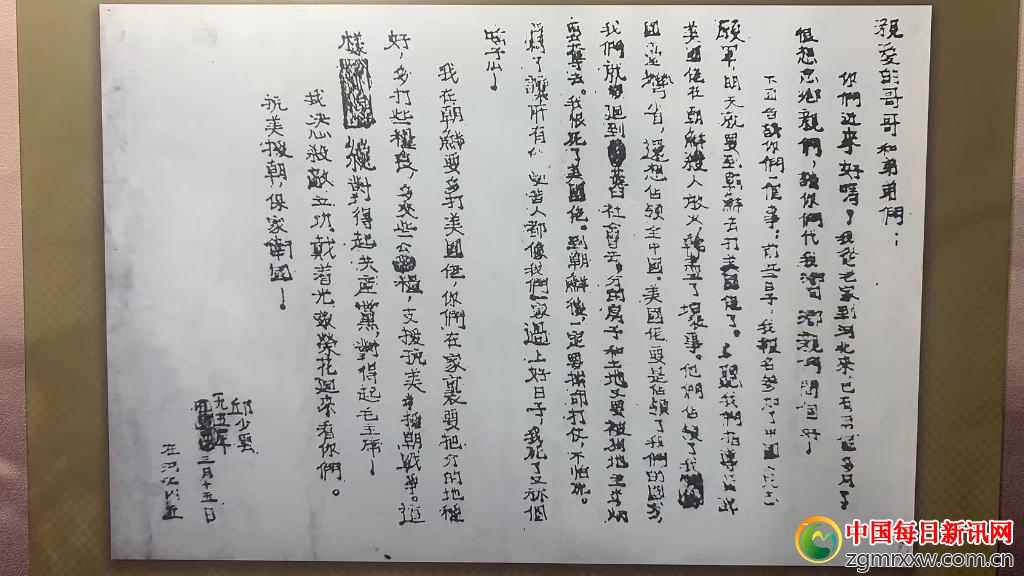 親爱的哥哥和弟弟們：
你們近来好嗎？我從老家到河北来已有
很想念鄉親們，請你們代我
下面告訴你們一件事：前三天，我報名参加了中國人民志
願軍，明天就要到朝鮮去打美國佬了。
美國佬在朝鮮殺人放火，壞事。他們佔領了我
國台灣省，還想佔領全中國。美國佬要是佔領了我們的國家，
我們就回到舊社會去，分的房子和土地又要被地主
奪去。我恨死了美國佬。到朝鮮後一定要打仗不怕死。
為了讓所有受苦人都像我們一過上好日子，我死了又祘個
啥子么！
我在朝鮮要多打美國佬，你們在家裏要把分的地種
好，多打些粮食，多交些公粮，支援抗美援朝戰争。這
樣對得起共産黨，對得起毛主席！
我决心殺敵立功，戴着光榮花迴来看你們。
抗美援朝，保家衛國！
邱少雲
一九五一年
二月十五日
在河北
中国每日新闻网
zgmrxxw.com.cn